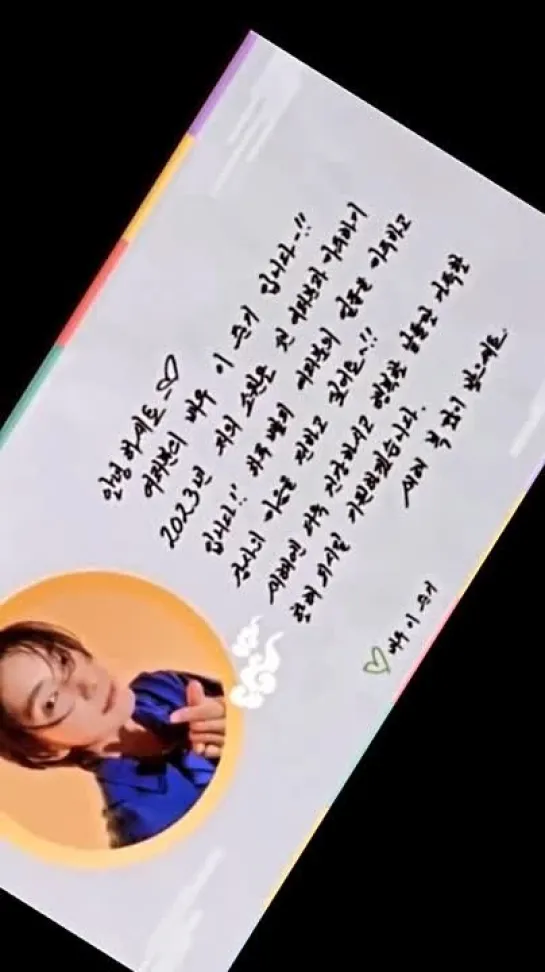 안녕하세요~
여러분의 배우 이 준기 입니다~!!
2023년 저의 소원은 전 여러분과 마주하기
입니다!! 하루 빨리 여러분의 얼굴을 마주하고
감사의 마음을 전하고 싶어요~!!
새해엔 더욱 건강하시고 행복한 날들만 가득한
한해 되시길 기원하겠습니다.
새해 복 많이 받으세요.
배우 이 준기